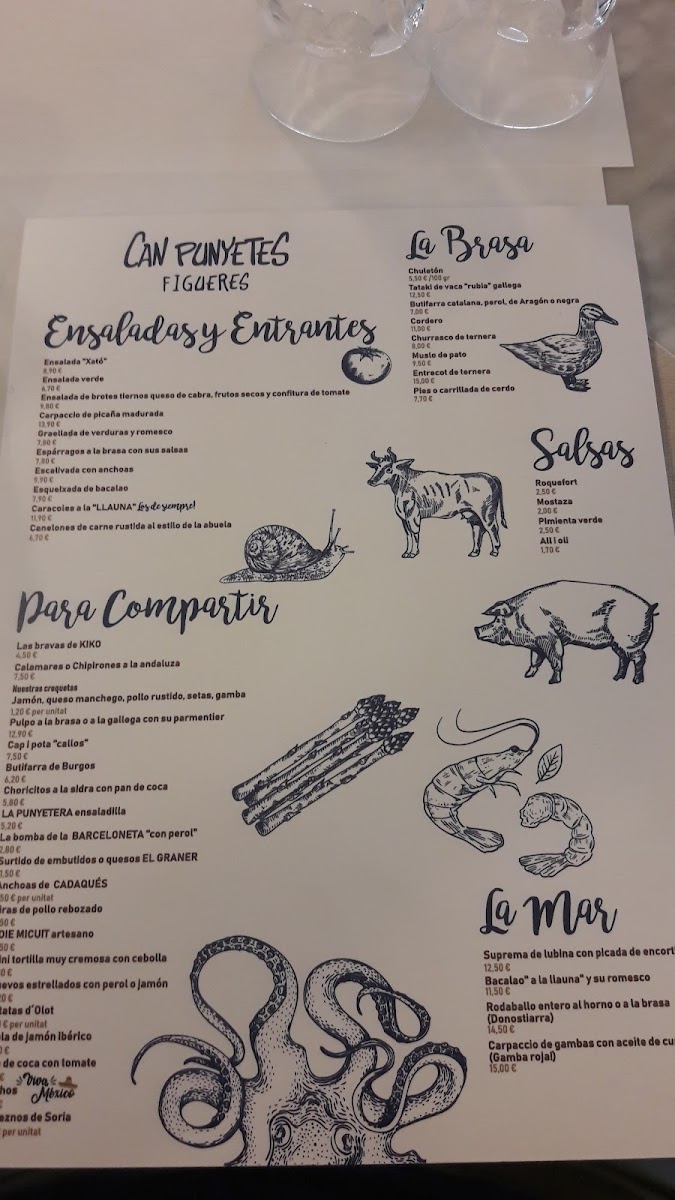 CAN PUNYETES
FIGUERES
Ensaladas y Entrantes
Ensalada "Xató"
8,90 €
Ensalada verde
6,70 €
Ensalada de brotes tiernos queso de cabra, frutos secos y confitura de tomate
9,80 €
Carpaccio de picaña madurada
13,90 €
Graellada de verduras y romesco
7,80 €
Espárragos a la brasa con sus salsas
7,80 €
Escalivada con anchoas
9,90 €
Esqueixada de bacalao
7,90 €
Caracoles a la "LLAUNA" Los de siempre!
11,90 €
Canelones de carne rustida al estilo de la abuela
6,70 €
Para Compartir
Las bravas de KIKO
4,50 €
Calamares o Chipirones a la andaluza
7,50 €
Nuestras croquetas
Jamón, queso manchego, pollo rustido, setas, gamba
1,20 € per unitat
Pulpo a la brasa o a la gallega con su parmentier
12,90 €
Cap i pota "callos"
7,50 €
Butifarra de Burgos
6,20 €
Choricitos a la sidra con pan de coca
5,80 €
LA PUNYETERA ensaladilla
5,20 €
La bomba de la BARCELONETA "con perol"
2,80 €
Surtido de embutidos o quesos EL GRANER
1,50 €
Anchoas de CADAQUÉS
50 € per unitat
iras de pollo rebozado
50 €
OIE MICUIT artesano
50 €
ini tortilla muy cremosa con cebolla
0 €
evos estrellados con perol o jamón
20 €
tatas d'Olot
€ per unitat
la de jamón ibérico
€
de coca con tomate
€
hos Viva México
€
eznos de Soria
per unitat
La Brasa
Chuletón
5,50 € /100 gr
Tataki de vaca "rubia" gallega
12,50 €
Butifarra catalana, perol, de Aragón o negra
7,00 €
Cordero
11,00 €
Churrasco de ternera
8,00 €
Muslo de pato
9,50 €
Entrecot de ternera
15,00 €
Pies o carrillada de cerdo
7,70 €
Salsas
Roquefort
2,50 €
Mostaza
2,00 €
Pimienta verde
2,50 €
All i oli
1,70 €
La Mar
Suprema de lubina con picada de encort
12,50 €
Bacalao" a la llauna" y su romesco
11,50 €
Rodaballo entero al horno o a la brasa
(Donostiarra)
14,50 €
Carpaccio de gambas con aceite de cu
(Gamba roja!)
15,00 €